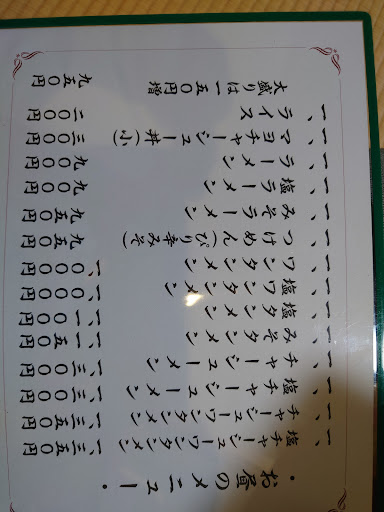 ・お昼のメニュー・
一、塩チャーシューワンタンメン 一、三五〇円
一、チャーシューワンタンメン 一、三五〇円
一、塩チャーシューメン 一、三〇〇円
一、チャーシューメン 一、三〇〇円
一、みそタンメン 一、一五〇円
一、塩タンメン 一、一〇〇円
一、塩ワンタンメン 一、〇〇〇円
一、ワンタンメン 一、〇〇〇円
一、つけめん(ぴり辛みそ) 九五〇円
一、みそラーメン 九五〇円
一、塩ラーメン 九〇〇円
一、ラーメン 九〇〇円
一、マヨチャーシュー丼(小) 三〇〇円
一、ライス 二〇〇円
大盛りは一五〇円増 九五〇円